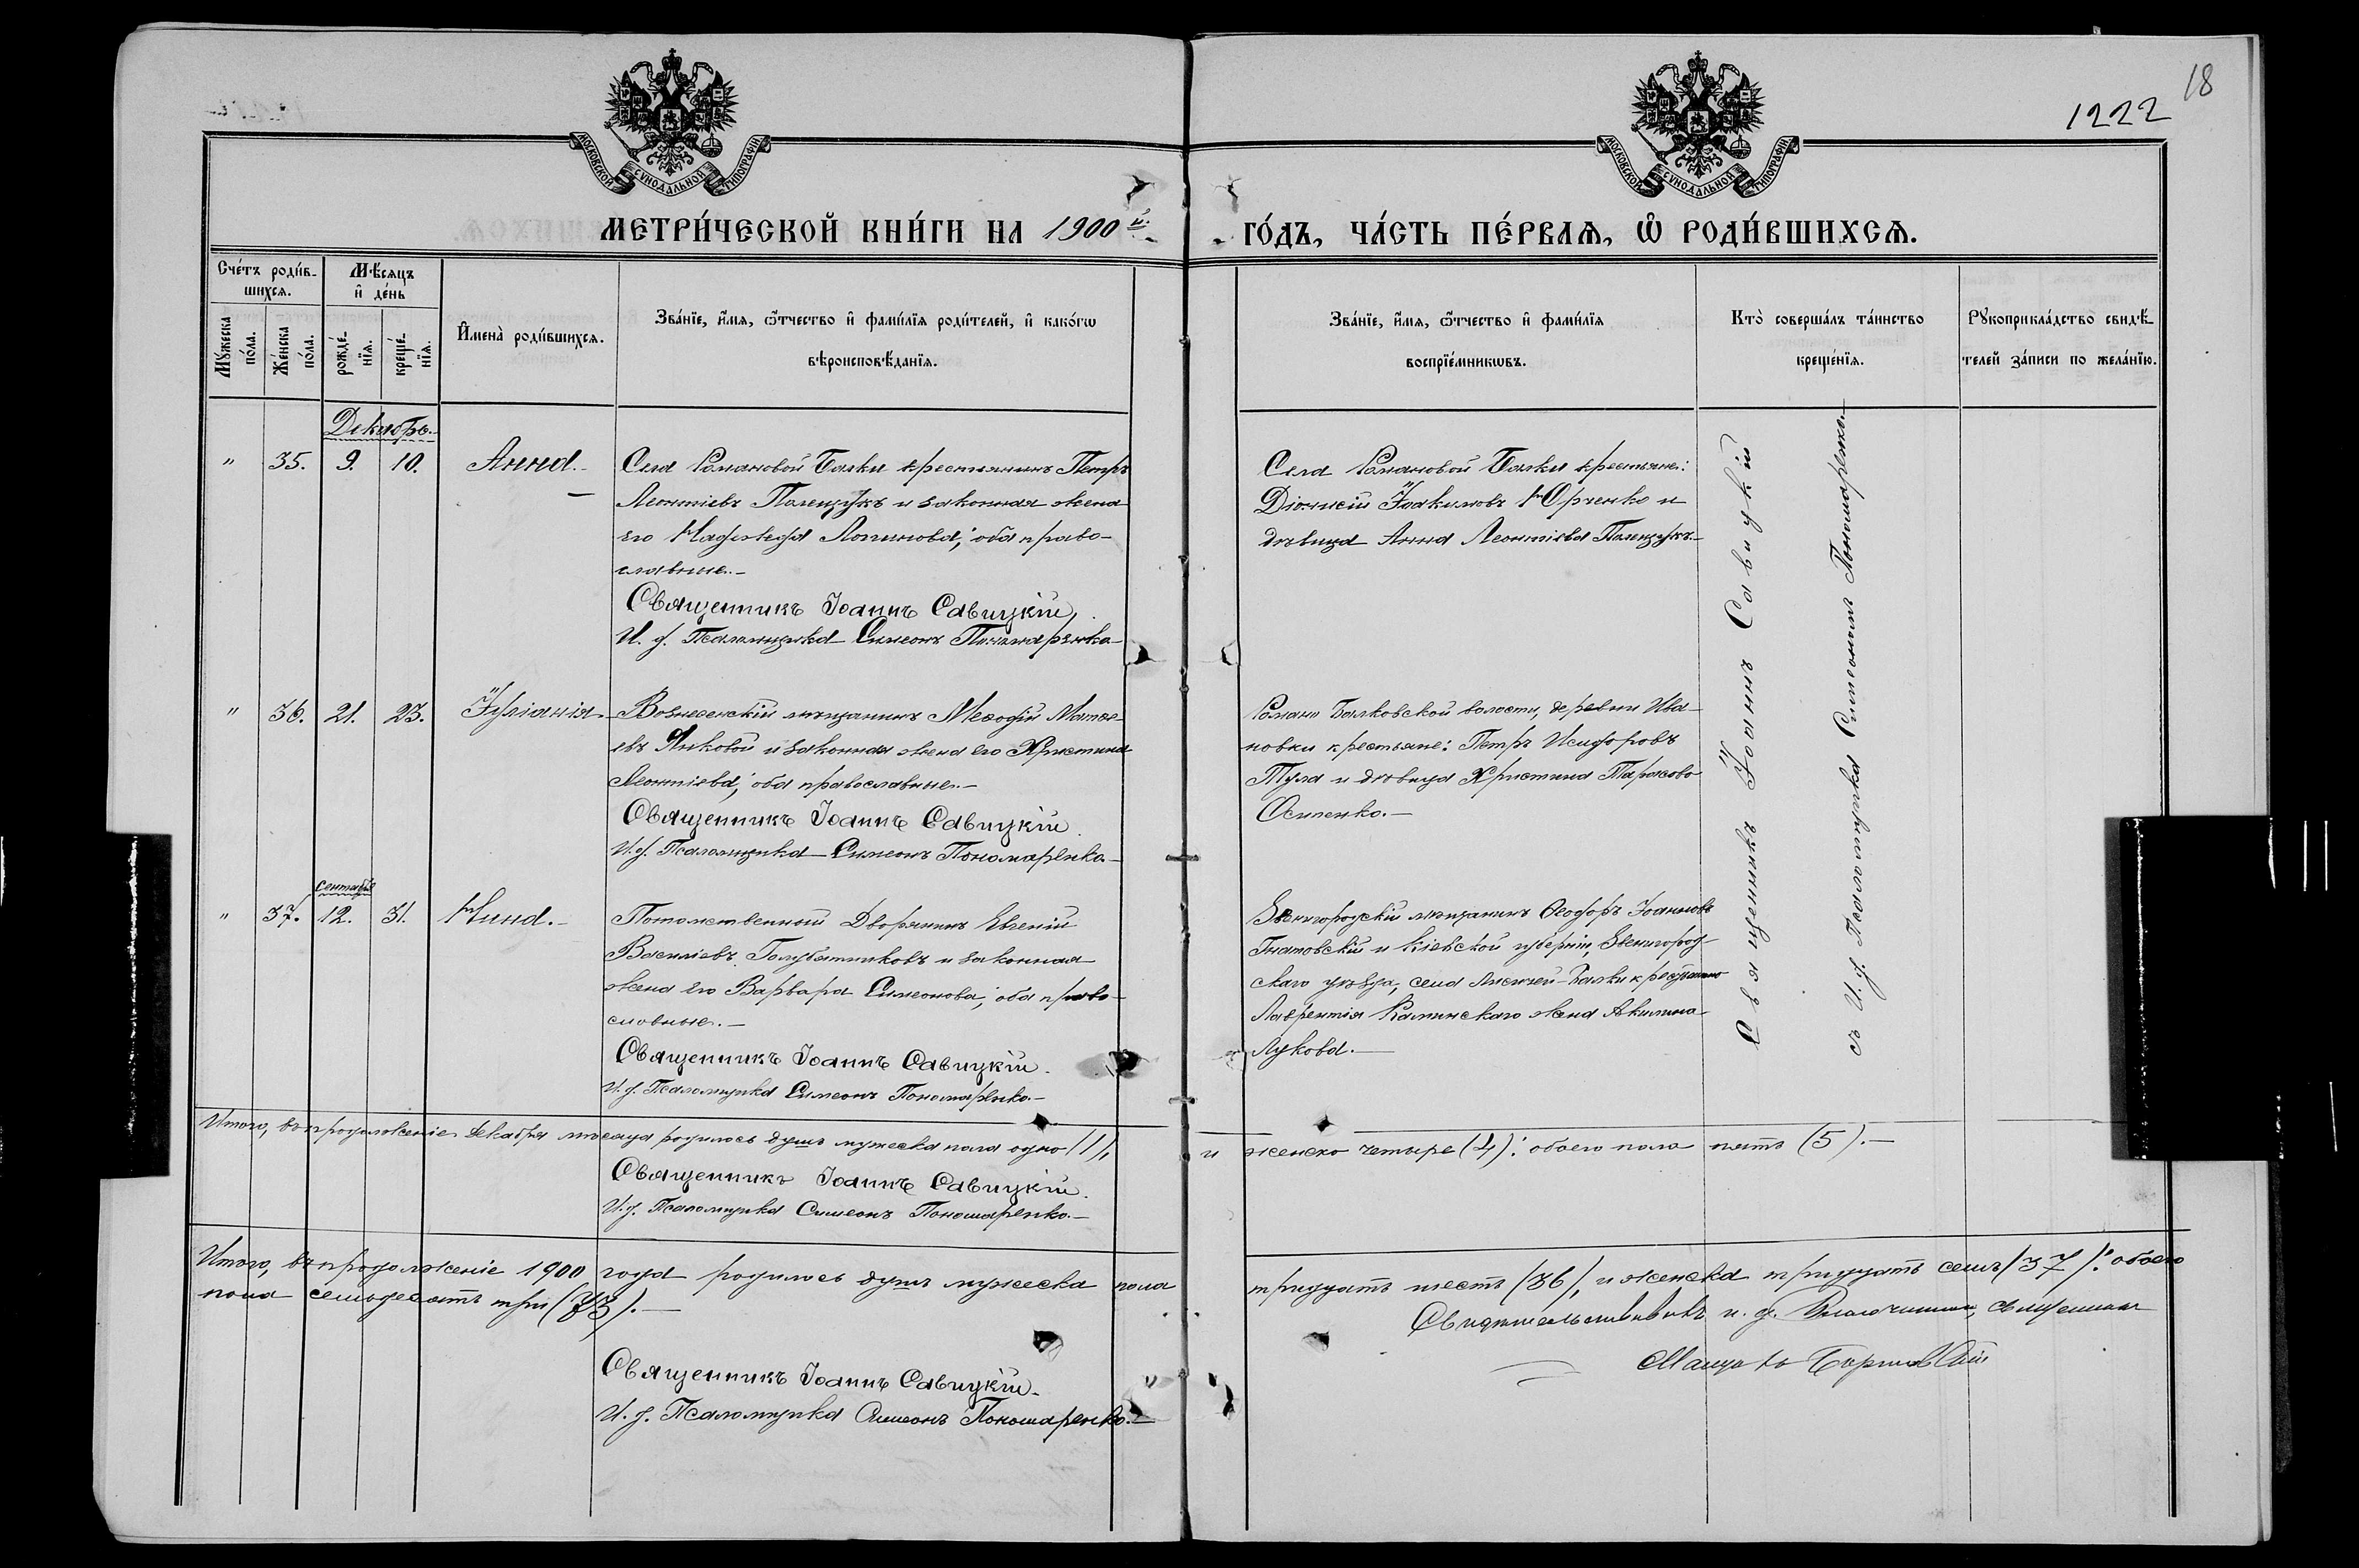 18
1222
МОСКОВСКОЙ СУНОДАЛЬНОЙ ТИПОГРАФІИ
МОСКОВСКОЙ СУНОДАЛЬНОЙ ТИПОГРАФІИ
МЕТРИ́ЧЕСКОЙ КНИ́ГИ НА 1900й
ГО́ДЪ, ЧА́СТЬ ПЕ́РВАЯ, Ѡ РОДИ́ВШИХСЯ.
Сче́тъ роди́в-
шихся.
Мѣ́сяцъ
и де́нь
Му́жеска
по́ла.
Же́нска
по́ла.
рожде́-
нїя.
креще́-
нїя.
Имена̀ роди́вшихся.
Зва́нїе, и́мя, ѻ́тчество и фами́лїя роди́телей, и како́гѡ
вѣроисповѣ́данїя.
Зва́нїе, и́мя, ѻ́тчество и фами́лїя
воспрїе́мникѡвъ.
Кто̀ соверша́лъ та́инство
креще́нїя.
Рукоприкла́дство свидѣ́-
телей за́писи по жела́нїю.
Декабрь.
" 35. 9. 10. Анна.
Села Романовой Балки крестьянинъ Петръ
Леонтіевъ Полещукъ и законная жена
его Надежда Логинова; оба право-
славные.
Священникъ Іоаннъ Савицкій,
И. д. Псаломщика Симеонъ Пономаренко
Села Романовой Балки крестьяне:
Діонисій Іоакимовъ Юрченко и
дѣвица Анна Леонтіева Полещукъ.
" 36. 21. 23. Іуліанія
Вознесенскій мѣщанинъ Меѳодій Матѳе-
евъ Янковой и законная жена его Христина
Леонтіева; оба православные.
Священникъ Іоаннъ Савицкій.
И. д. Псаломщика Симеонъ Пономаренко
Романо Балковской волости, деревни Ива-
новки крестьяне: Петръ Исидоровъ
Тула и дѣвица Христина Тарасова
Осипенко.
сентября
" 37. 12. 31. Нина.
Потомственный Дворянинъ Евгеній
Василіевъ Голубятниковъ и законная
жена его Варвара Симеонова; оба право-
славные.
Священникъ Іоаннъ Савицкій.
И. д. Псаломщика Симеонъ Пономаренко.
Звенигородскій мѣщанинъ Ѳеодоръ Іоанновъ
Гнатовскій и Кіевской губерніи, Звенигород-
скаго уѣзда, села Лисичей-Балки крестьянина
Лаврентія Калинскаго жена Акилина
Лукова.
Священникъ Іоаннъ Савицкій
съ И. д. Псаломщика Симеономъ Пономаренко.
Итого, въ продолженіе Декабря мѣсяца родилось душъ мужеска пола одно (1),
и женско четыре (4): обоего пола пять (5).
Священникъ Іоаннъ Савицкій.
И. д. Псаломщика Симеонъ Пономаренко.
Итого, въ продолженіе 1900 года родилось душъ мужеска пола
тридцать шесть (36), и женска тридцать семь (37): обоего
пола семьдесятъ три (73).
Священникъ Іоаннъ Савицкій.
И. д. Псаломщика Симеонъ Пономаренко.
Свидѣтельствовалъ и. д. Благочиннаго, священникъ